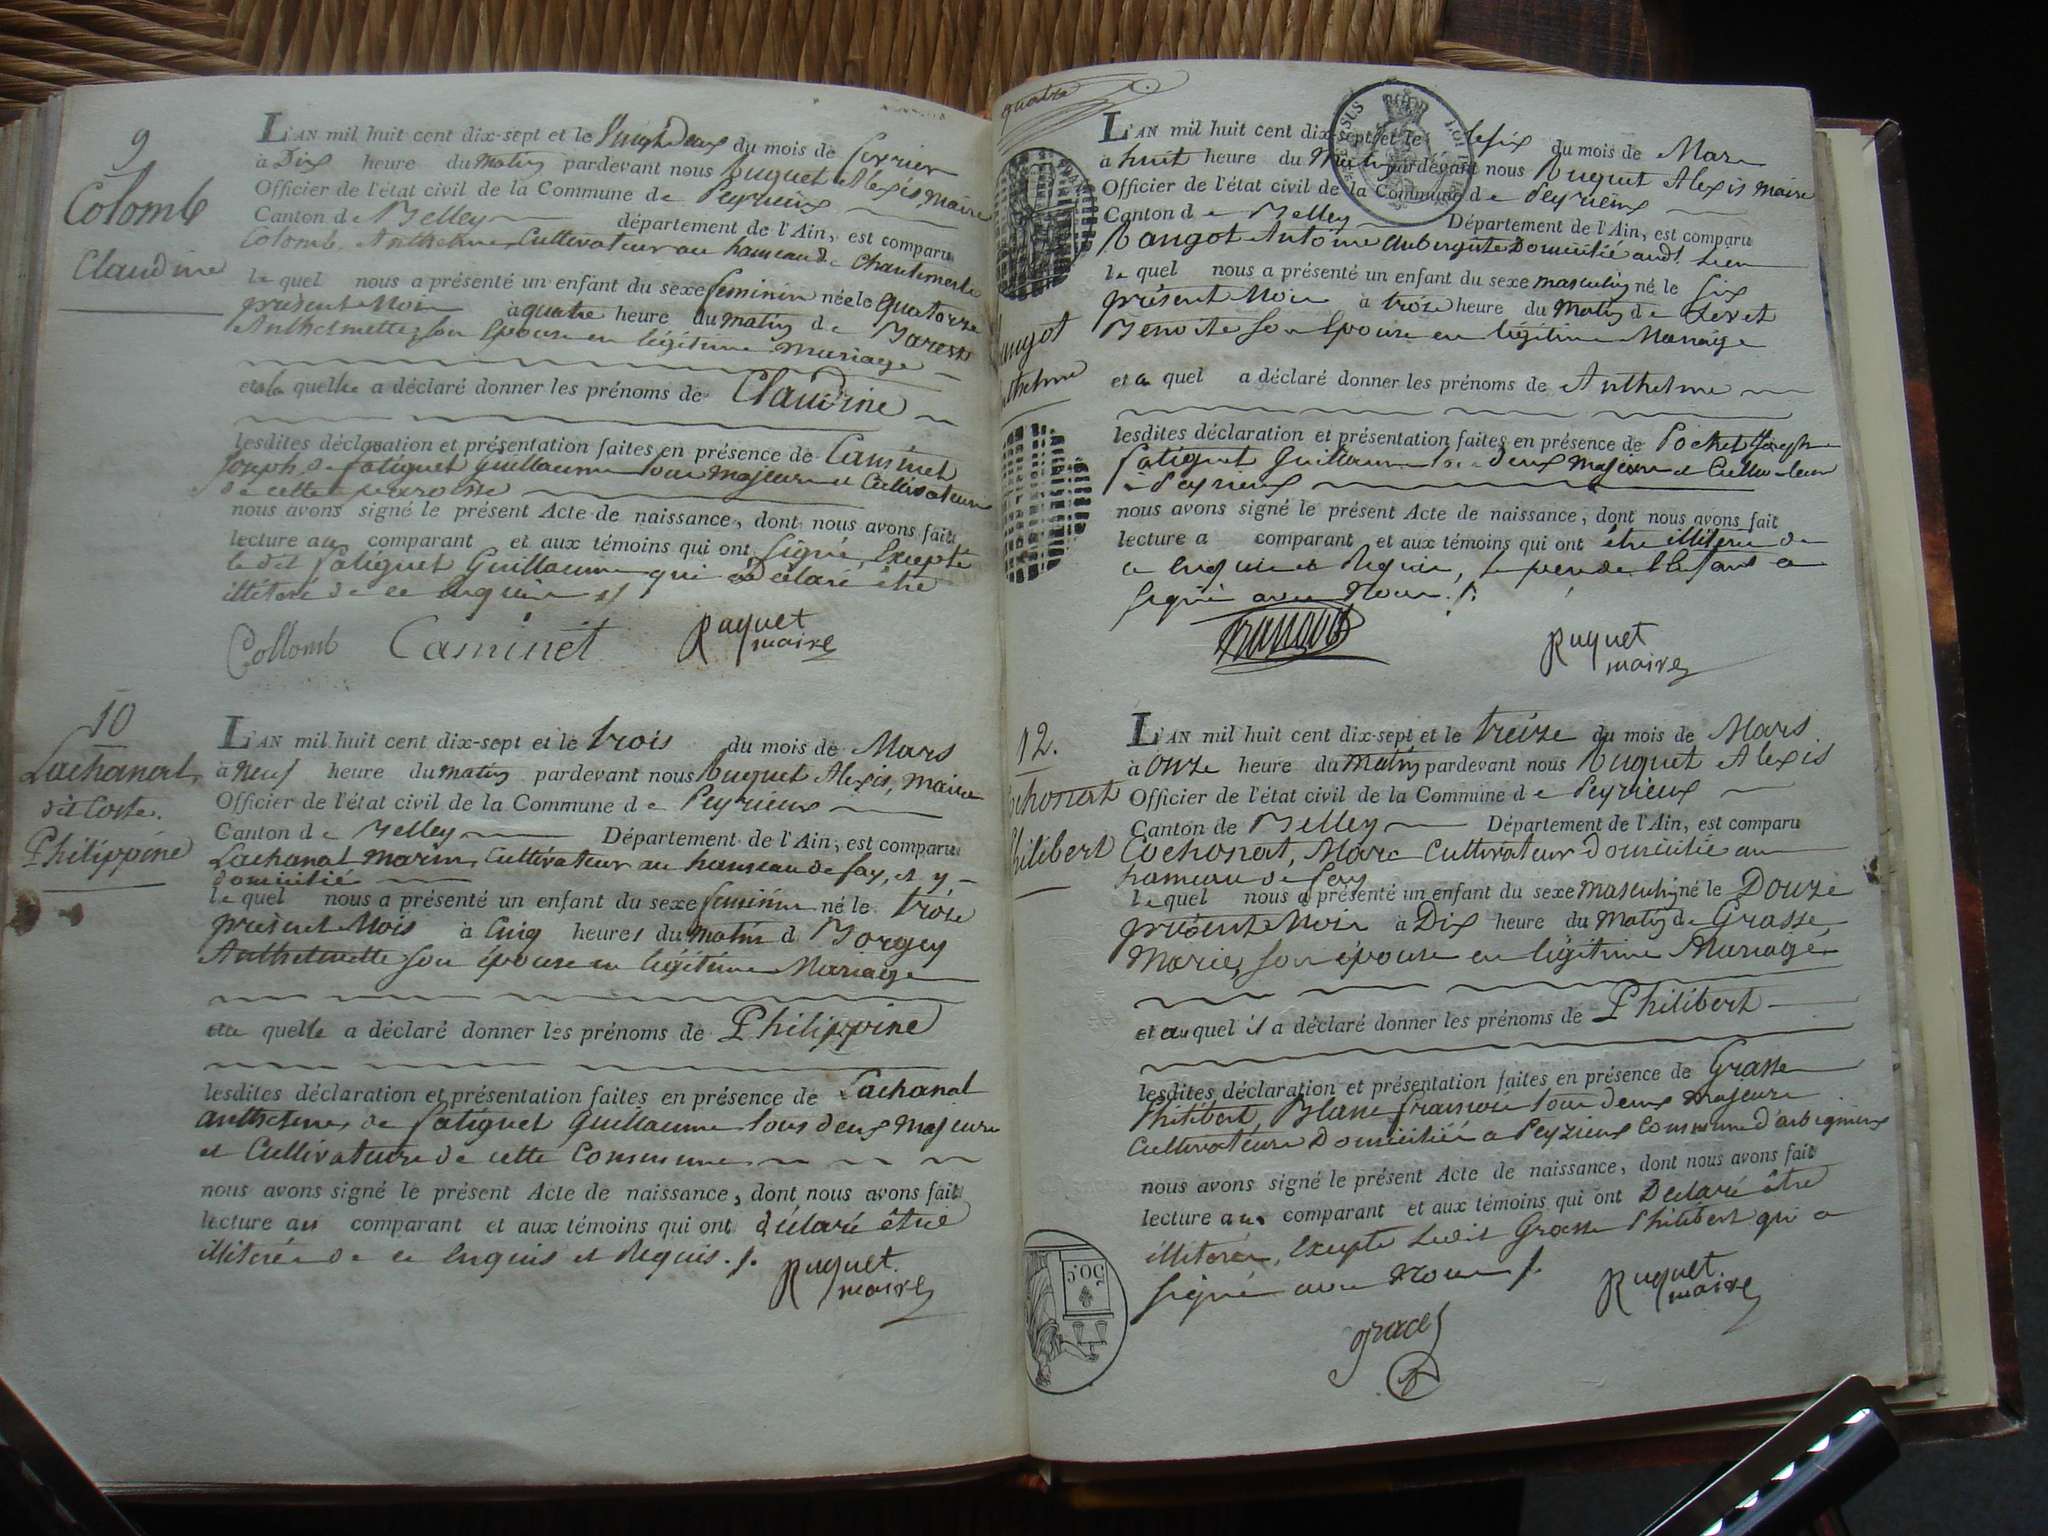 9
Colomb
Claudine
L'AN mil huit cent dix-sept et le vingt deux du mois de fevrier
à Dix heure du matin pardevant nous Ruquet Alexis, maire
Officier de l'état civil de la Commune de Peyrieux
Canton de Belley département de l'Ain, est comparu
Colomb Anthelme Cultivateur au hameau de Chantemerle
lequel nous a présenté un enfant du sexe feminin née le quatorze
présent Mois à quatre heure du matin de
Anthelmette son Epouse en légitime mariage
et à la quelle a déclaré donner les prénoms de Claudine
lesdites déclaration et présentation faites en présence de Caminet
Joseph de fatiguet Guillaume tous majeurs et Cultivateurs
de cette paroisse
nous avons signé le présent Acte de naissance, dont nous avons fait
lecture au comparant et aux témoins qui ont signé, Excepté
le dit fatiguet Guillaume qui a déclaré être
illiteré de ce enquis
Collomb Caminet Ruquet maire
10
Lachanal
dit Coste.
Philippine
L'AN mil huit cent dix-sept et le trois du mois de Mars
à neuf heure du matin pardevant nous Ruquet Alexis, maire
Officier de l'état civil de la Commune de Peyrieux
Canton de Belley Département de l'Ain, est comparu
Lachanal marin, Cultivateur au hameau de fay, et y
domicilié
le quel nous a présenté un enfant du sexe feminin né le trois
présent Mois à Cinq heures du matin d Borgey
Anthelmette son épouse en légitime Mariage
et a quelle a déclaré donner les prénoms de Philippine
lesdites déclaration et présentation faites en présence de Lachanal
anthelme de fatiguet Guillaume tous deux majeurs
et Cultivateurs de cette Commune
nous avons signé le présent Acte de naissance, dont nous avons fait
lecture au comparant et aux témoins qui ont déclaré être
illiterés de ce Enquis et Requis.
Ruquet maire
quatre
angot
thelme
L'AN mil huit cent dix-sept et le six du mois de Mars
à huit heure du Matin pardevant nous Ruquet Alexis maire
Officier de l'état civil de la Commune de Peyrieux
Canton de Belley Département de l'Ain, est comparu
Rangot Antoine aubergiste Domicilié audt. Lieu
le quel nous a présenté un enfant du sexe masculin né le six
présent Mois à trois heure du Matin de
Benoite son Epouse en légitime Mariage
et a quel a déclaré donner les prénoms de Anthelme
lesdites déclaration et présentation faites en présence de Pochet Joseph
fatiguet Guillaume deux majeurs et Cultivateurs
a Peyrieux
nous avons signé le présent Acte de naissance, dont nous avons fait
lecture a comparant et aux témoins qui ont être illiterés de
ce Enquis et Requis, le père de l'Enfant a
signé avec Nous.
Ruquet maire
12.
ochonat
hilibert
L'AN mil huit cent dix-sept et le treize du mois de Mars
à onze heure du Matin pardevant nous Ruquet Alexis
Officier de l'état civil de la Commune de Peyrieux
Canton de Belley Département de l'Ain, est comparu
Cochonat, Marc Cultivateur domicilié au
hameau de fey
le quel nous a présenté un enfant du sexe masculin né le Douze
présent Mois à Dix heure du Matin de Grasse
Marie, son épouse en légitime Mariage
et au quel il a déclaré donner les prénoms de Philibert
lesdites déclaration et présentation faites en présence de Grasse
Philibert, Blanc francois tous deux majeurs
Cultivateurs Domiciliés a Peyzieux Commune d'arbignieux
nous avons signé le présent Acte de naissance, dont nous avons fait
lecture aux comparant et aux témoins qui ont Déclaré être
illiterés, Excepté Ledit Grasse Philibert qui a
signé avec Nous
Ruquet maire
graces
50.c